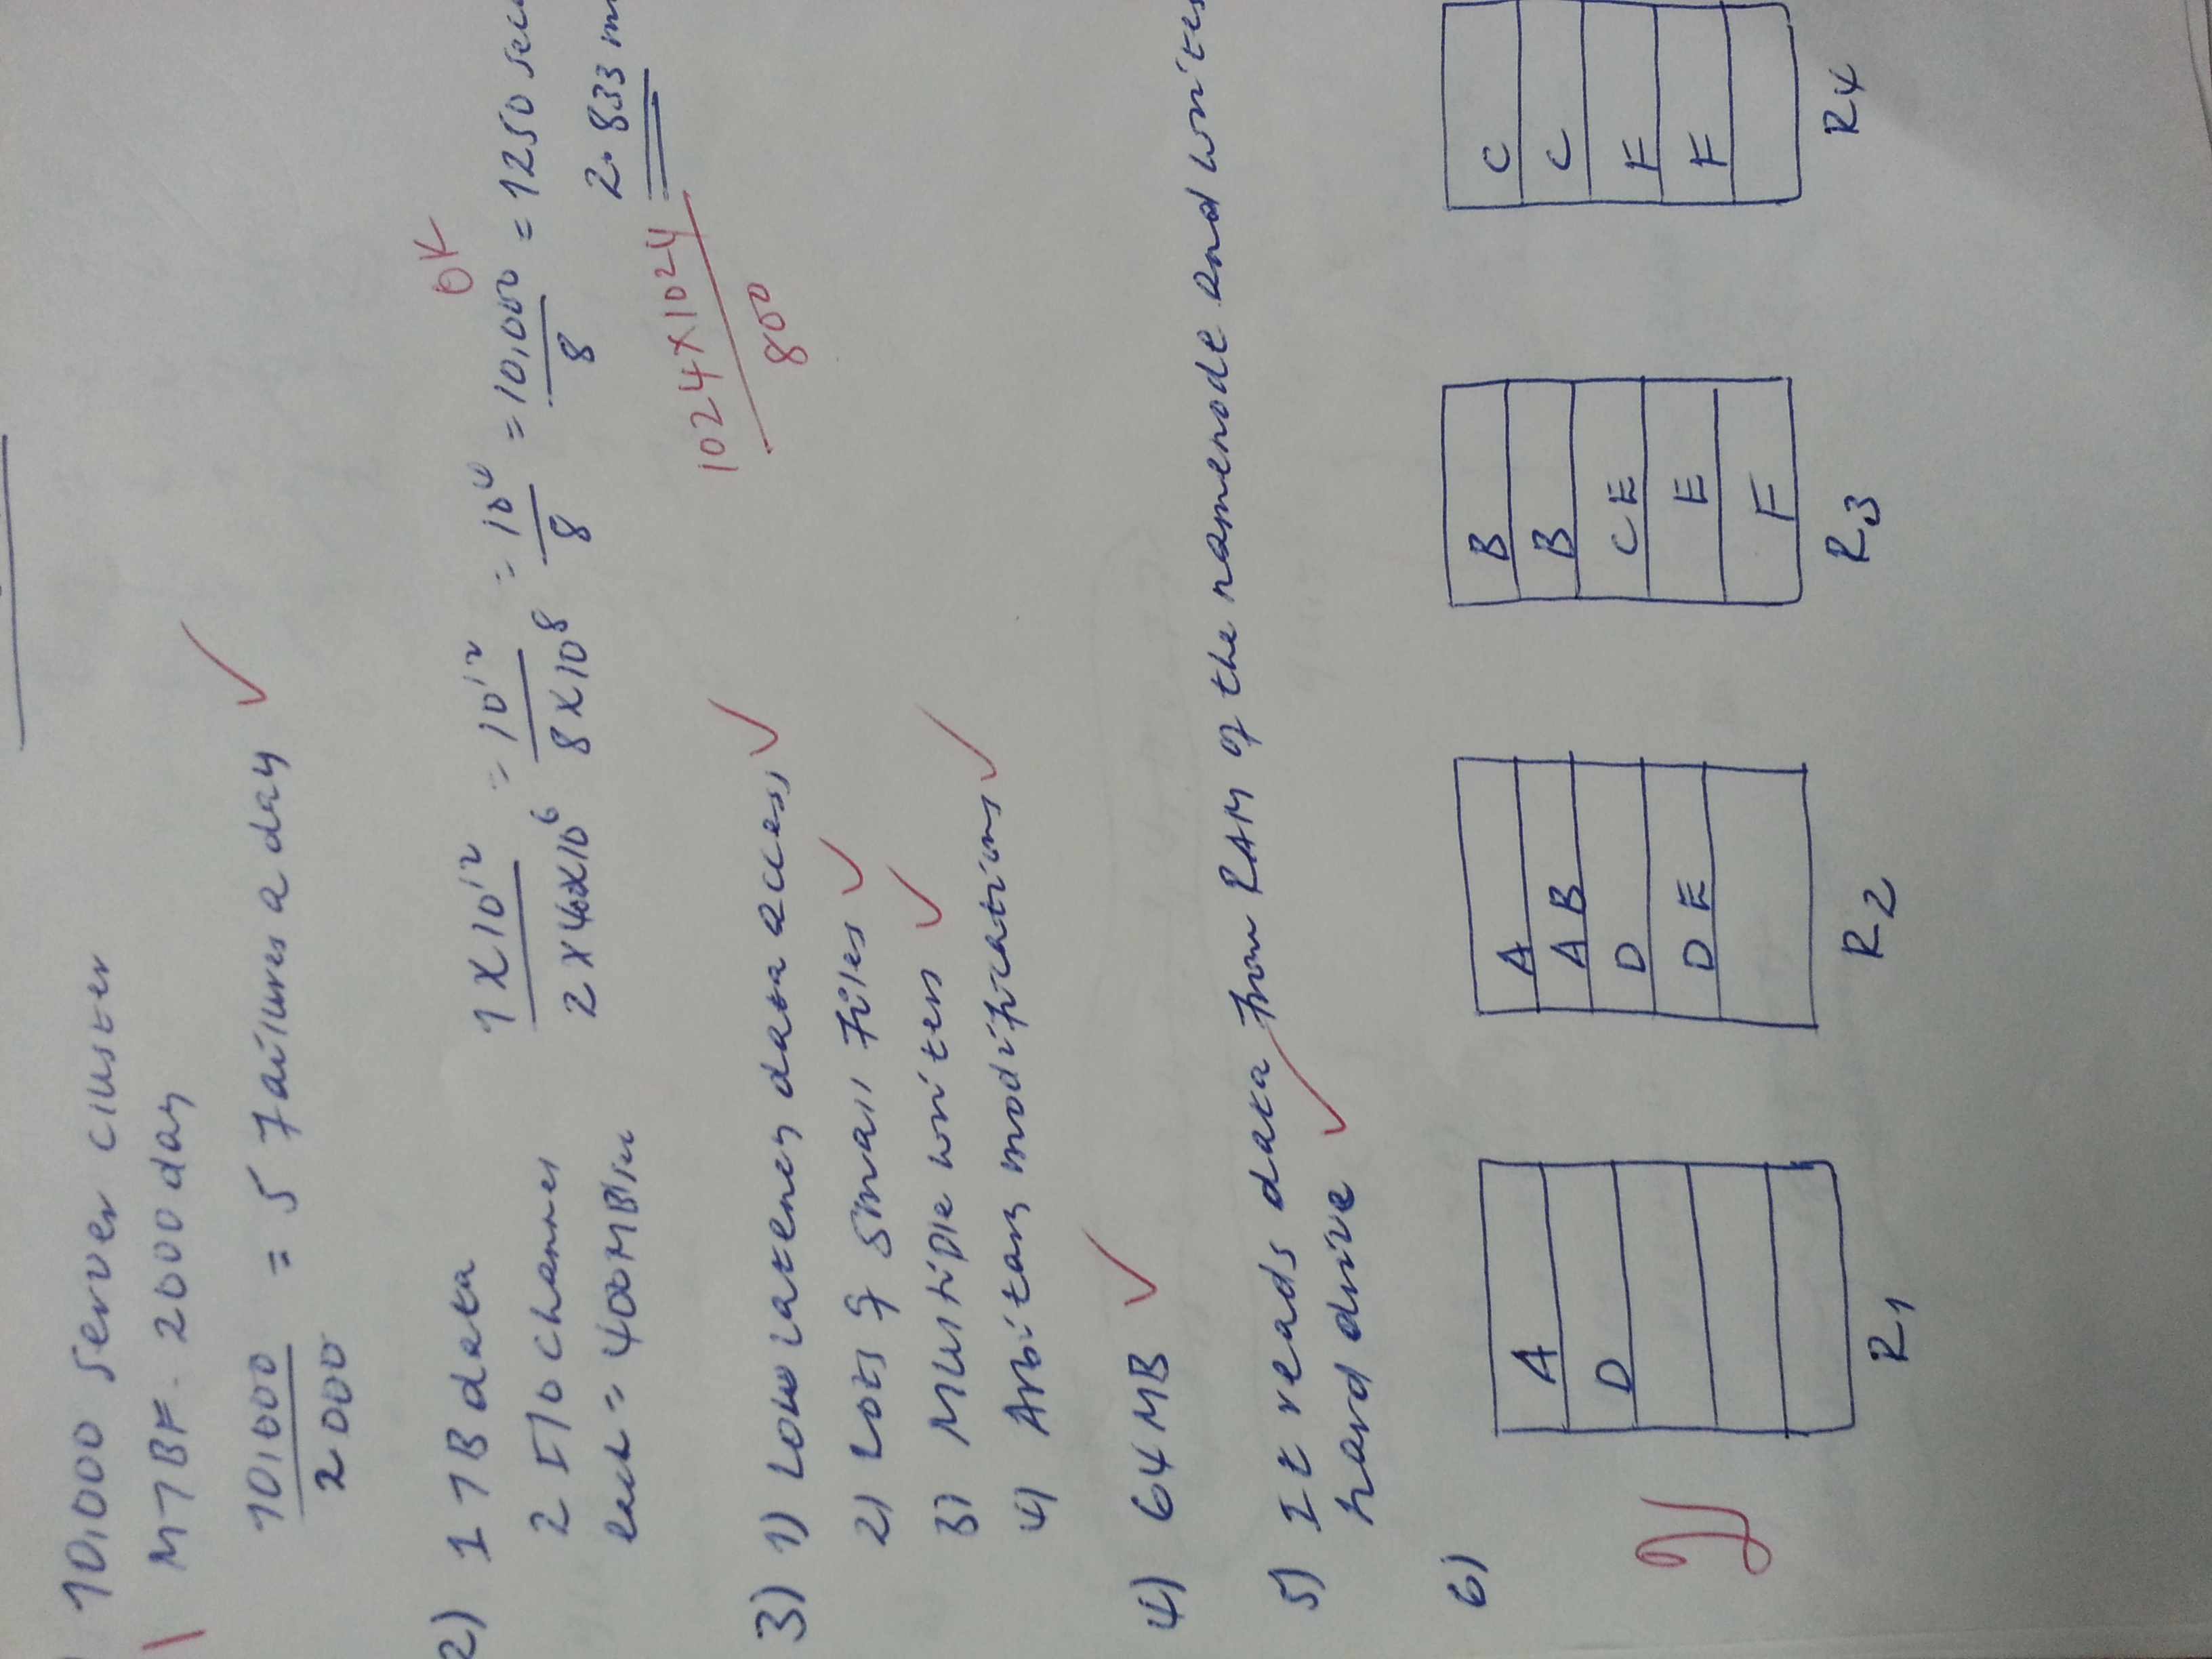 10,000 server cluster
1 MTBF - 2000 day
10,000
= 5 Failures a day ✓
2000
2) 1 TB data
2 I/O Channel
each = 400MB/sec
OK
1 X 10^12 = 10^12 = 10^4 = 10,000 = 1250 sec
2 X 400 X 10^6 8 X 10^8 8 8
2.833 m
1024 X 1024
800
3) 1) Low latency data access ✓
2) Lots of small Files ✓
3) Multiple writers ✓
4) Arbitary modifications ✓
4) 64 MB ✓
5) It reads data from RAM of the namenode and writes
hard drive ✓
6)
A
D
R1
A
A B
D
D E
R2
B
B
C E
E
F
R3
C
C
F
F
R4